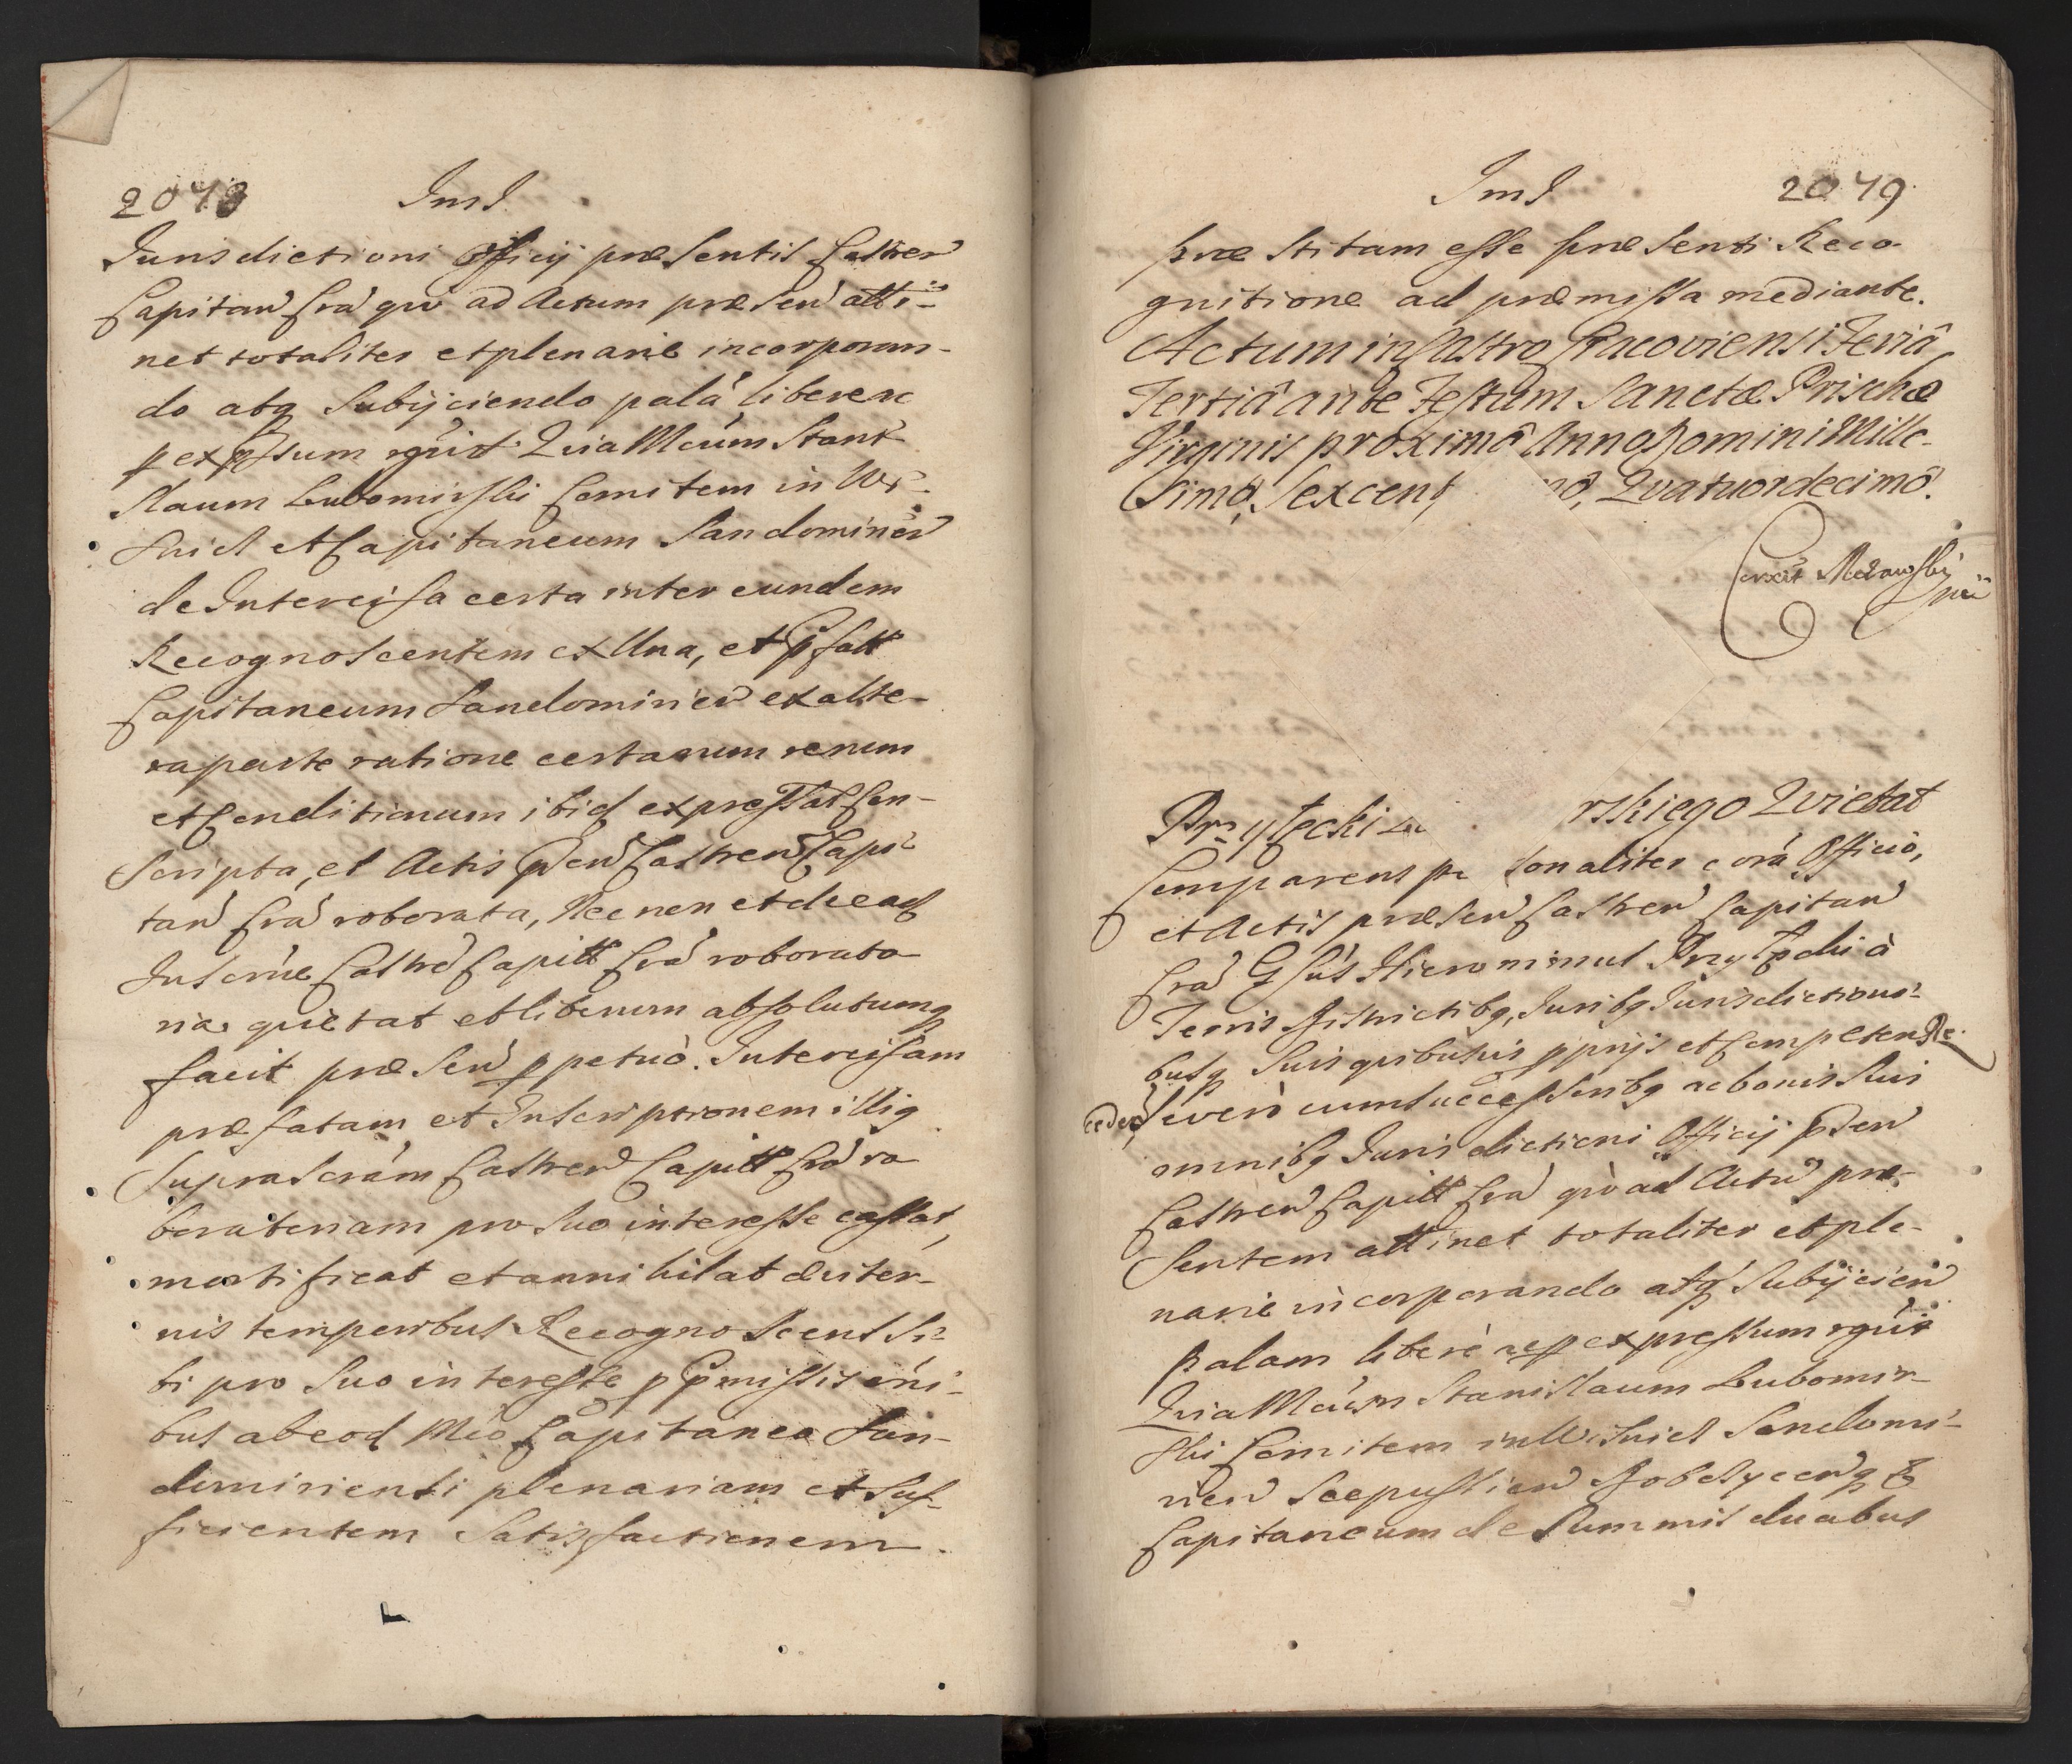 2078 Ind
Jurisdictioni Officij præsentis Castren
Capitan Cra quo ad Actum præsen atti-
net totaliter et plenarie incorporan-
do atq Subijciendo palá libere ac
p expssum rgűit Quia Mcum Stani
slaum Lubomirski Comitem in Wi-
snicz et Capitaneum Sandominen
de Intercisa certa inter eundem
Recognoscentem ex Una, et Pfatt
Capitaneum Sandomirien ex alte-
ra parte ratione certarum rerum
et Conditionum ibid expressat Con-
scripta, et Actis Psen Castren Capi-
tan Cra roborata, Necnon et de ead
Inscrne Castre Capitt Cra roborato-
ria quietat et liberum absolutumq
facit præsen ppetuò. Intercisam
præfatam et Inscriptionem illiq
Suprascrám Castren Capitt Cra ro
boratoriam pro suo interesse cassat,
mortificat et annihilat æviter-
nis temporibus Recognoscens Si-
bi pro Suo interesse p Pmissis oni-
bus ab eod Mco Capitaneo San-
domiriensi plenariam et suf-
ficientem Satisfactionem.
Ind 2079
præstitam esse præsenti Reco-
gnitione ad præmissa mediante.
Actum in Castro Cracoviensi Feriâ
Tertiâ ante Festum Sanctæ Priscæ
Virginis proximâ Anno Domini Mille-
simo, Sexcent mô, Quatuordecimô.
Przyłęcki rskiego Quietat
Comparens pe sonaliter corá Officio,
et Actis præsen Castren Capitan
Cra Gsus Hieronimus Przyłęcki à
Terris Districtibq, Juribq Jurisdictioni-
busq Suis quibusvis pprijs et Competen Re
ceden Severò cum successoribq ac bonis Suis
omnibq Jurisdictioni Officij Psen
Castren Capitt Cra quò ad Actu præ-
sentem attinet totaliter et ple-
narie incorporando atq Subijcien
palam liberè ac p expressum rgűit
Quia Mcum Stanislaum Lubomir-
ski Comitem in Wisnicz Sandomi-
rien Scepusien Dobczycenq &
Capitaneum de Summis duabus